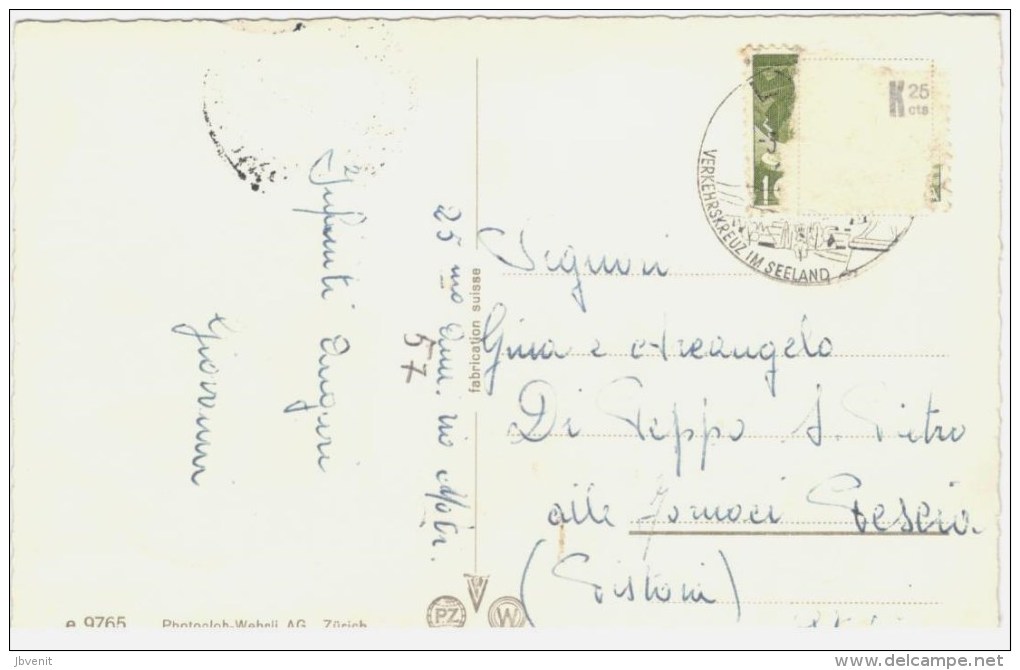 25mo Ann. rio Matr.
57
Infiniti Auguri
Giovanni
fabrication suisse
K 25
cts
1
VERKEHRSKREUZ IM SEELAND
Signori
Gina e Arcangelo
Di Peppo S. Pietro
alle Fornaci Pescia
(Pistoia)
PZ W
e 9765 Photoglob-Wehrli AG Zürich
jbvenit
www.delcampe.net